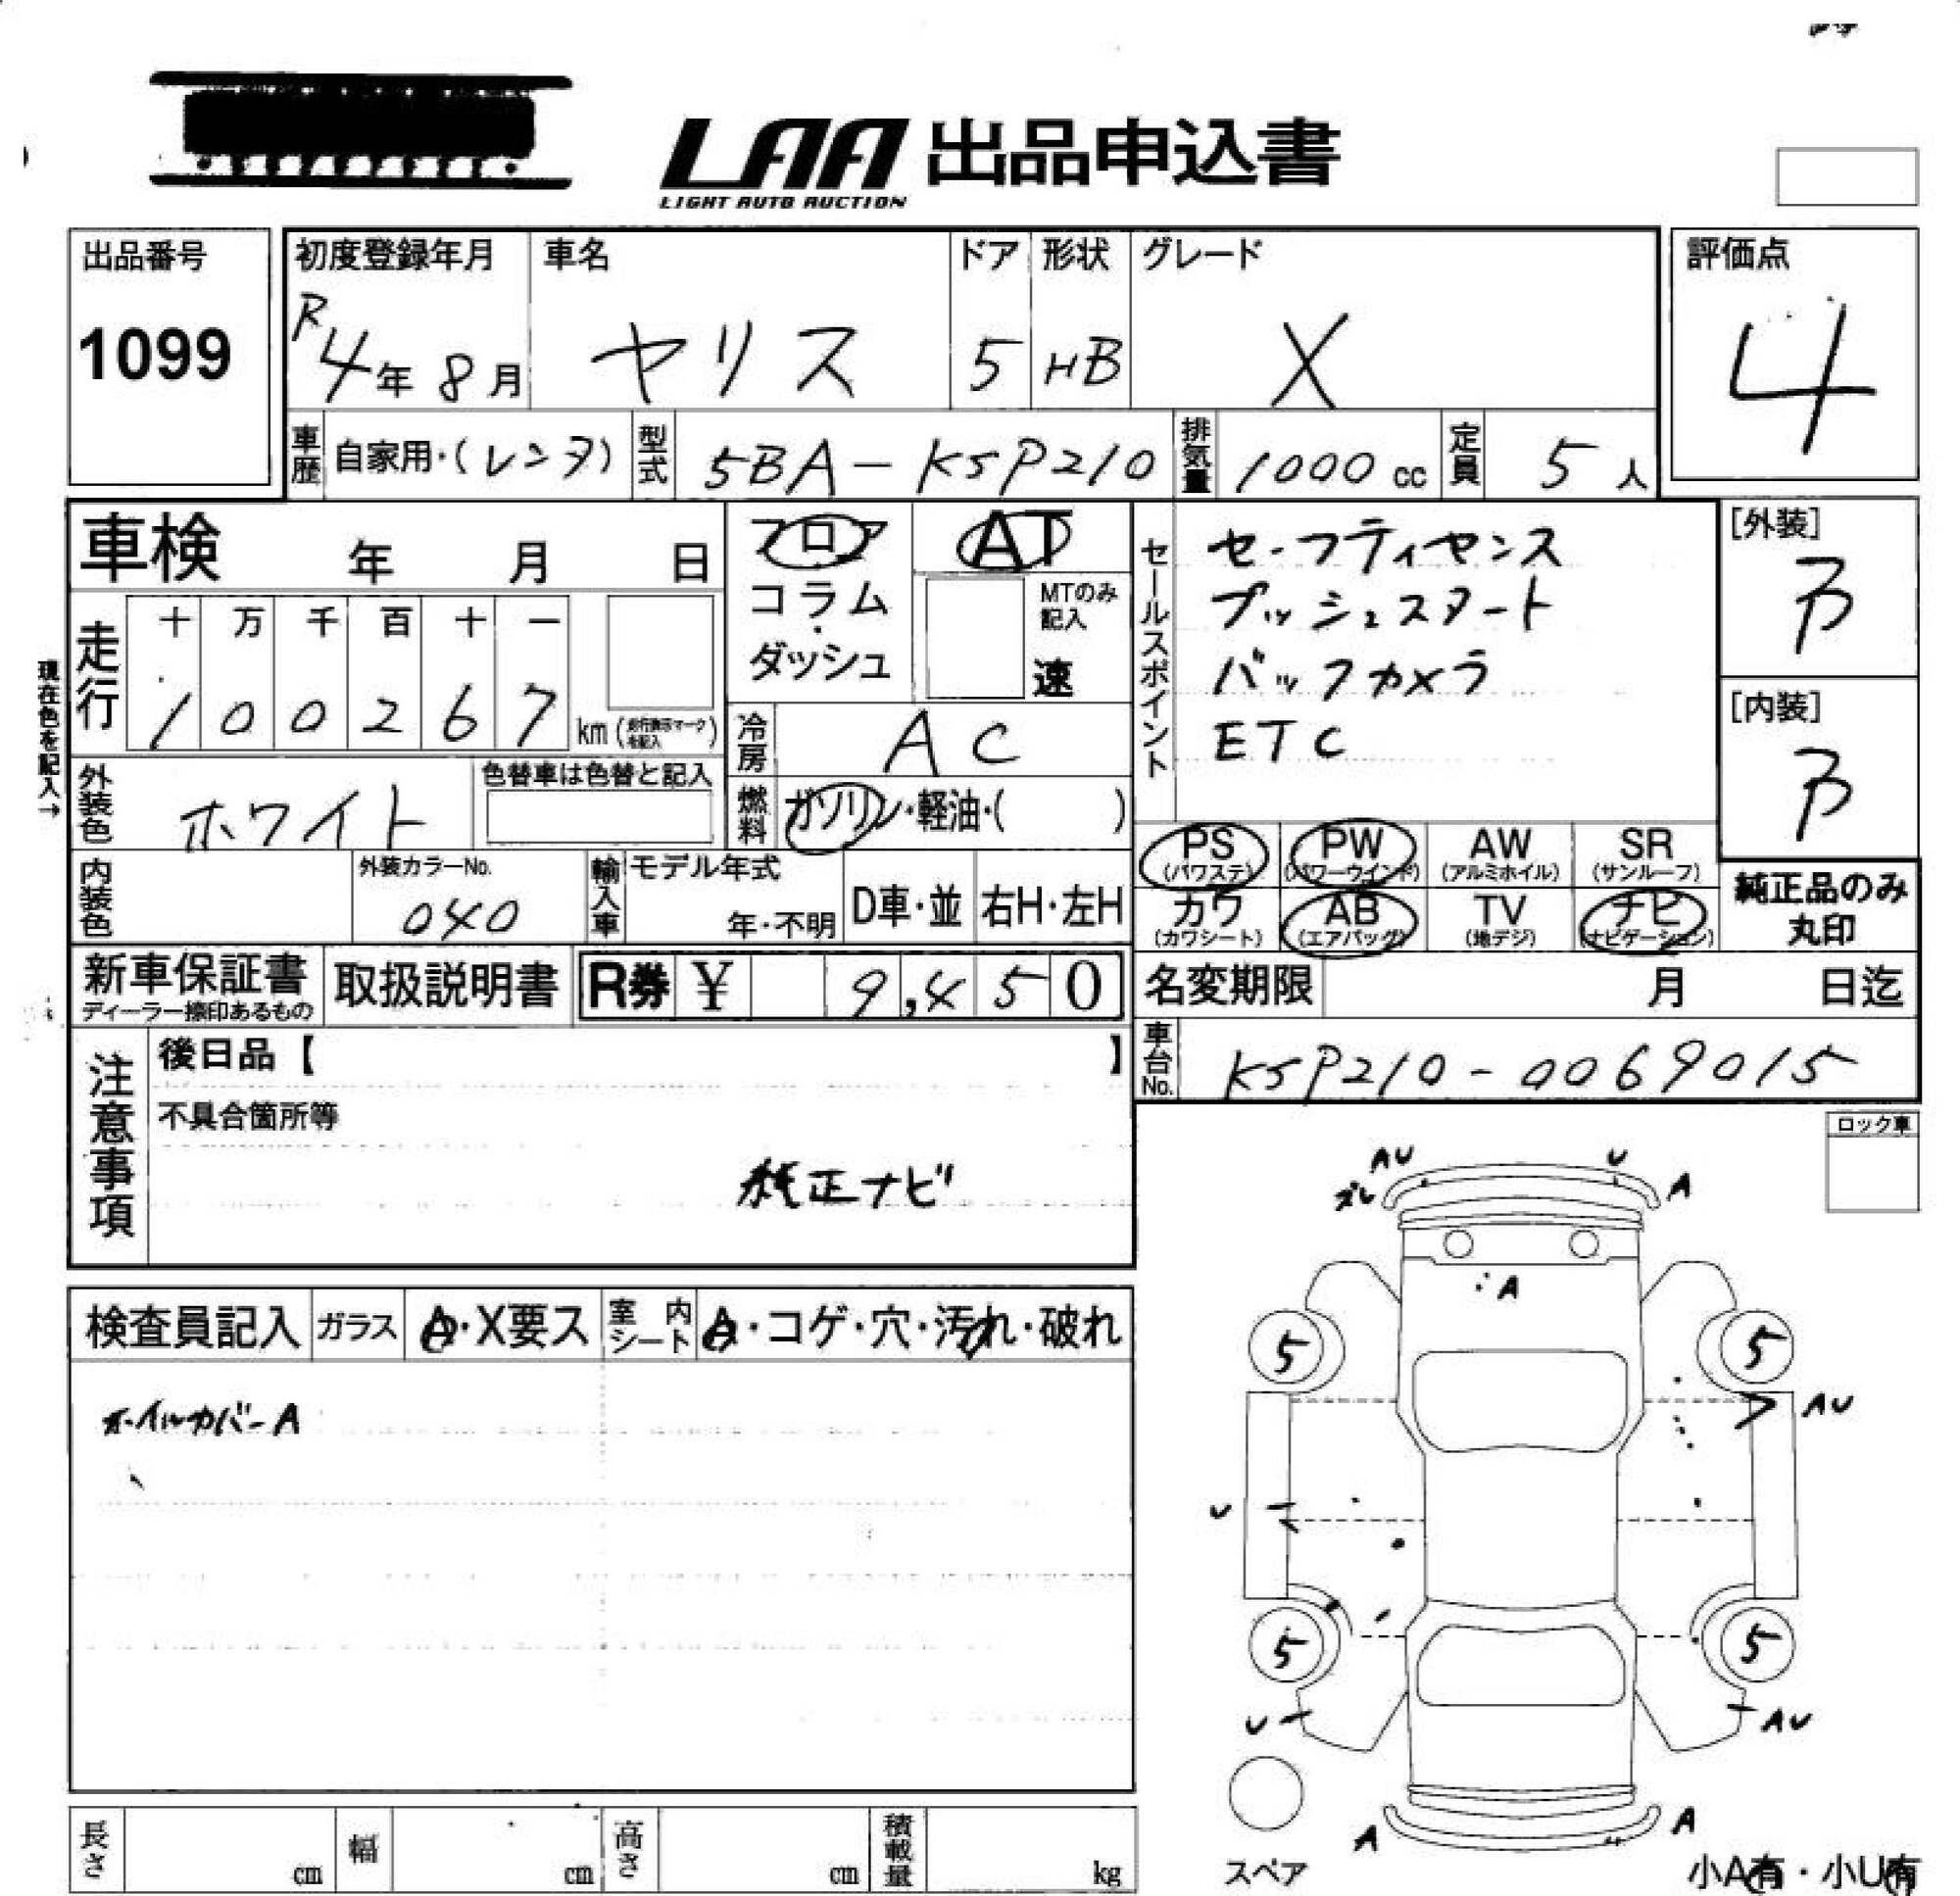 LAA 出品申込書
LIGHT AUTO AUCTION
出品番号
1099
初度登録年月
R4年8月
車名
ヤリス
ドア
5
形状
HB
グレード
X
評価点
4
車歴 自家用・(レンタ)
型式 5BA-KSP210
排気量 1000cc
定員 5人
車検 年 月 日
現在色を記入→
走行
十 万 千 百 十 一
1 0 0 2 6 7 km
フロア
コラム
・
ダッシュ
AT
MTのみ
記入
速
冷房 AC
燃料 ガソリン・軽油・( )
セールスポイント
セーフティセンス
プッシュスタート
バックカメラ
ETC
[外装]
B
[内装]
B
外装色 ホワイト
色替車は色替と記入
内装色
外装カラーNo.
040
輸入車
モデル年式
年・不明
D車・並
右H・左H
PS
(パワステ)
PW
(パワーウインド)
AW
(アルミホイル)
SR
(サンルーフ)
カワ
(カワシート)
AB
(エアバッグ)
TV
(地デジ)
ナビ
(ナビゲーション)
純正品のみ
丸印
新車保証書
ディーラー捺印あるもの
取扱説明書
R券 ¥ 9,450
名変期限 月 日迄
車台No. KSP210-0069015
注意事項
後日品【 】
不具合箇所等
純正ナビ
ロック車
検査員記入
ガラス A・X要ス
室内シート A・コゲ・穴・汚れ・破れ
ホイルカバーA
AU
U
A
ズレ
A
5
5
AU
U
5
5
U
AU
A
A
スペア
小A有・小U有
長さ cm
幅 cm
高さ cm
積載量 kg